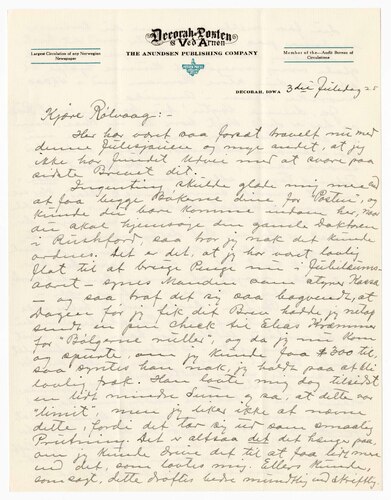 Decorah-Posten
og Ved Arnen
Largest Circulation of any Norwegian
Newspaper
THE ANUNDSEN PUBLISHING COMPANY
Member of the Audit Bureau of
Circulations
DECORAH, IOWA 3die Juledag 25
Kjære Rölvaag:-
Her har vært saa forsat travelt nu med
denne Julesjauen og mye andet, at jeg
ikke har fundet til med at svare paa
sidste Brevet dit.
Ingenting skulde glæde mig mer end
at faa begge Bøkene dine for "Posten", og
kunde du bare komme indom her, naar
du skal hjemover den gamle Doktoren
i Rushford, saa tror jeg nok det kunde
ordnes. Det er det, at jeg har vært
flat til at bruge Penge nu i
aaret, synes Manden som styrer Kassa
- og saa traf det sig saa bagvendt, at
Dagen før jeg fik dit Brev hadde jeg netop
sendt en pen Check til Elias Kræmmer
for "Bölgerne ruller", og da jeg nu kom
og spurte, om jeg kunde faa $300 til,
saa syntes han nok, jeg holdt paa at bli
. Han lovte mig dog tilsidst
en litt mindre Sum og sa, at dette var
"limit", men jeg liker ikke at nævne
dette, fordi det tar sig ut som smaalig
Prutning. Det er altsaa det det hænger paa,
om jeg kunde drive det til at faa litt mer
end det, som lovtes mig. Ellers kunde,
som sagt, dette drøftes bedre mundtlig end skriftlig,